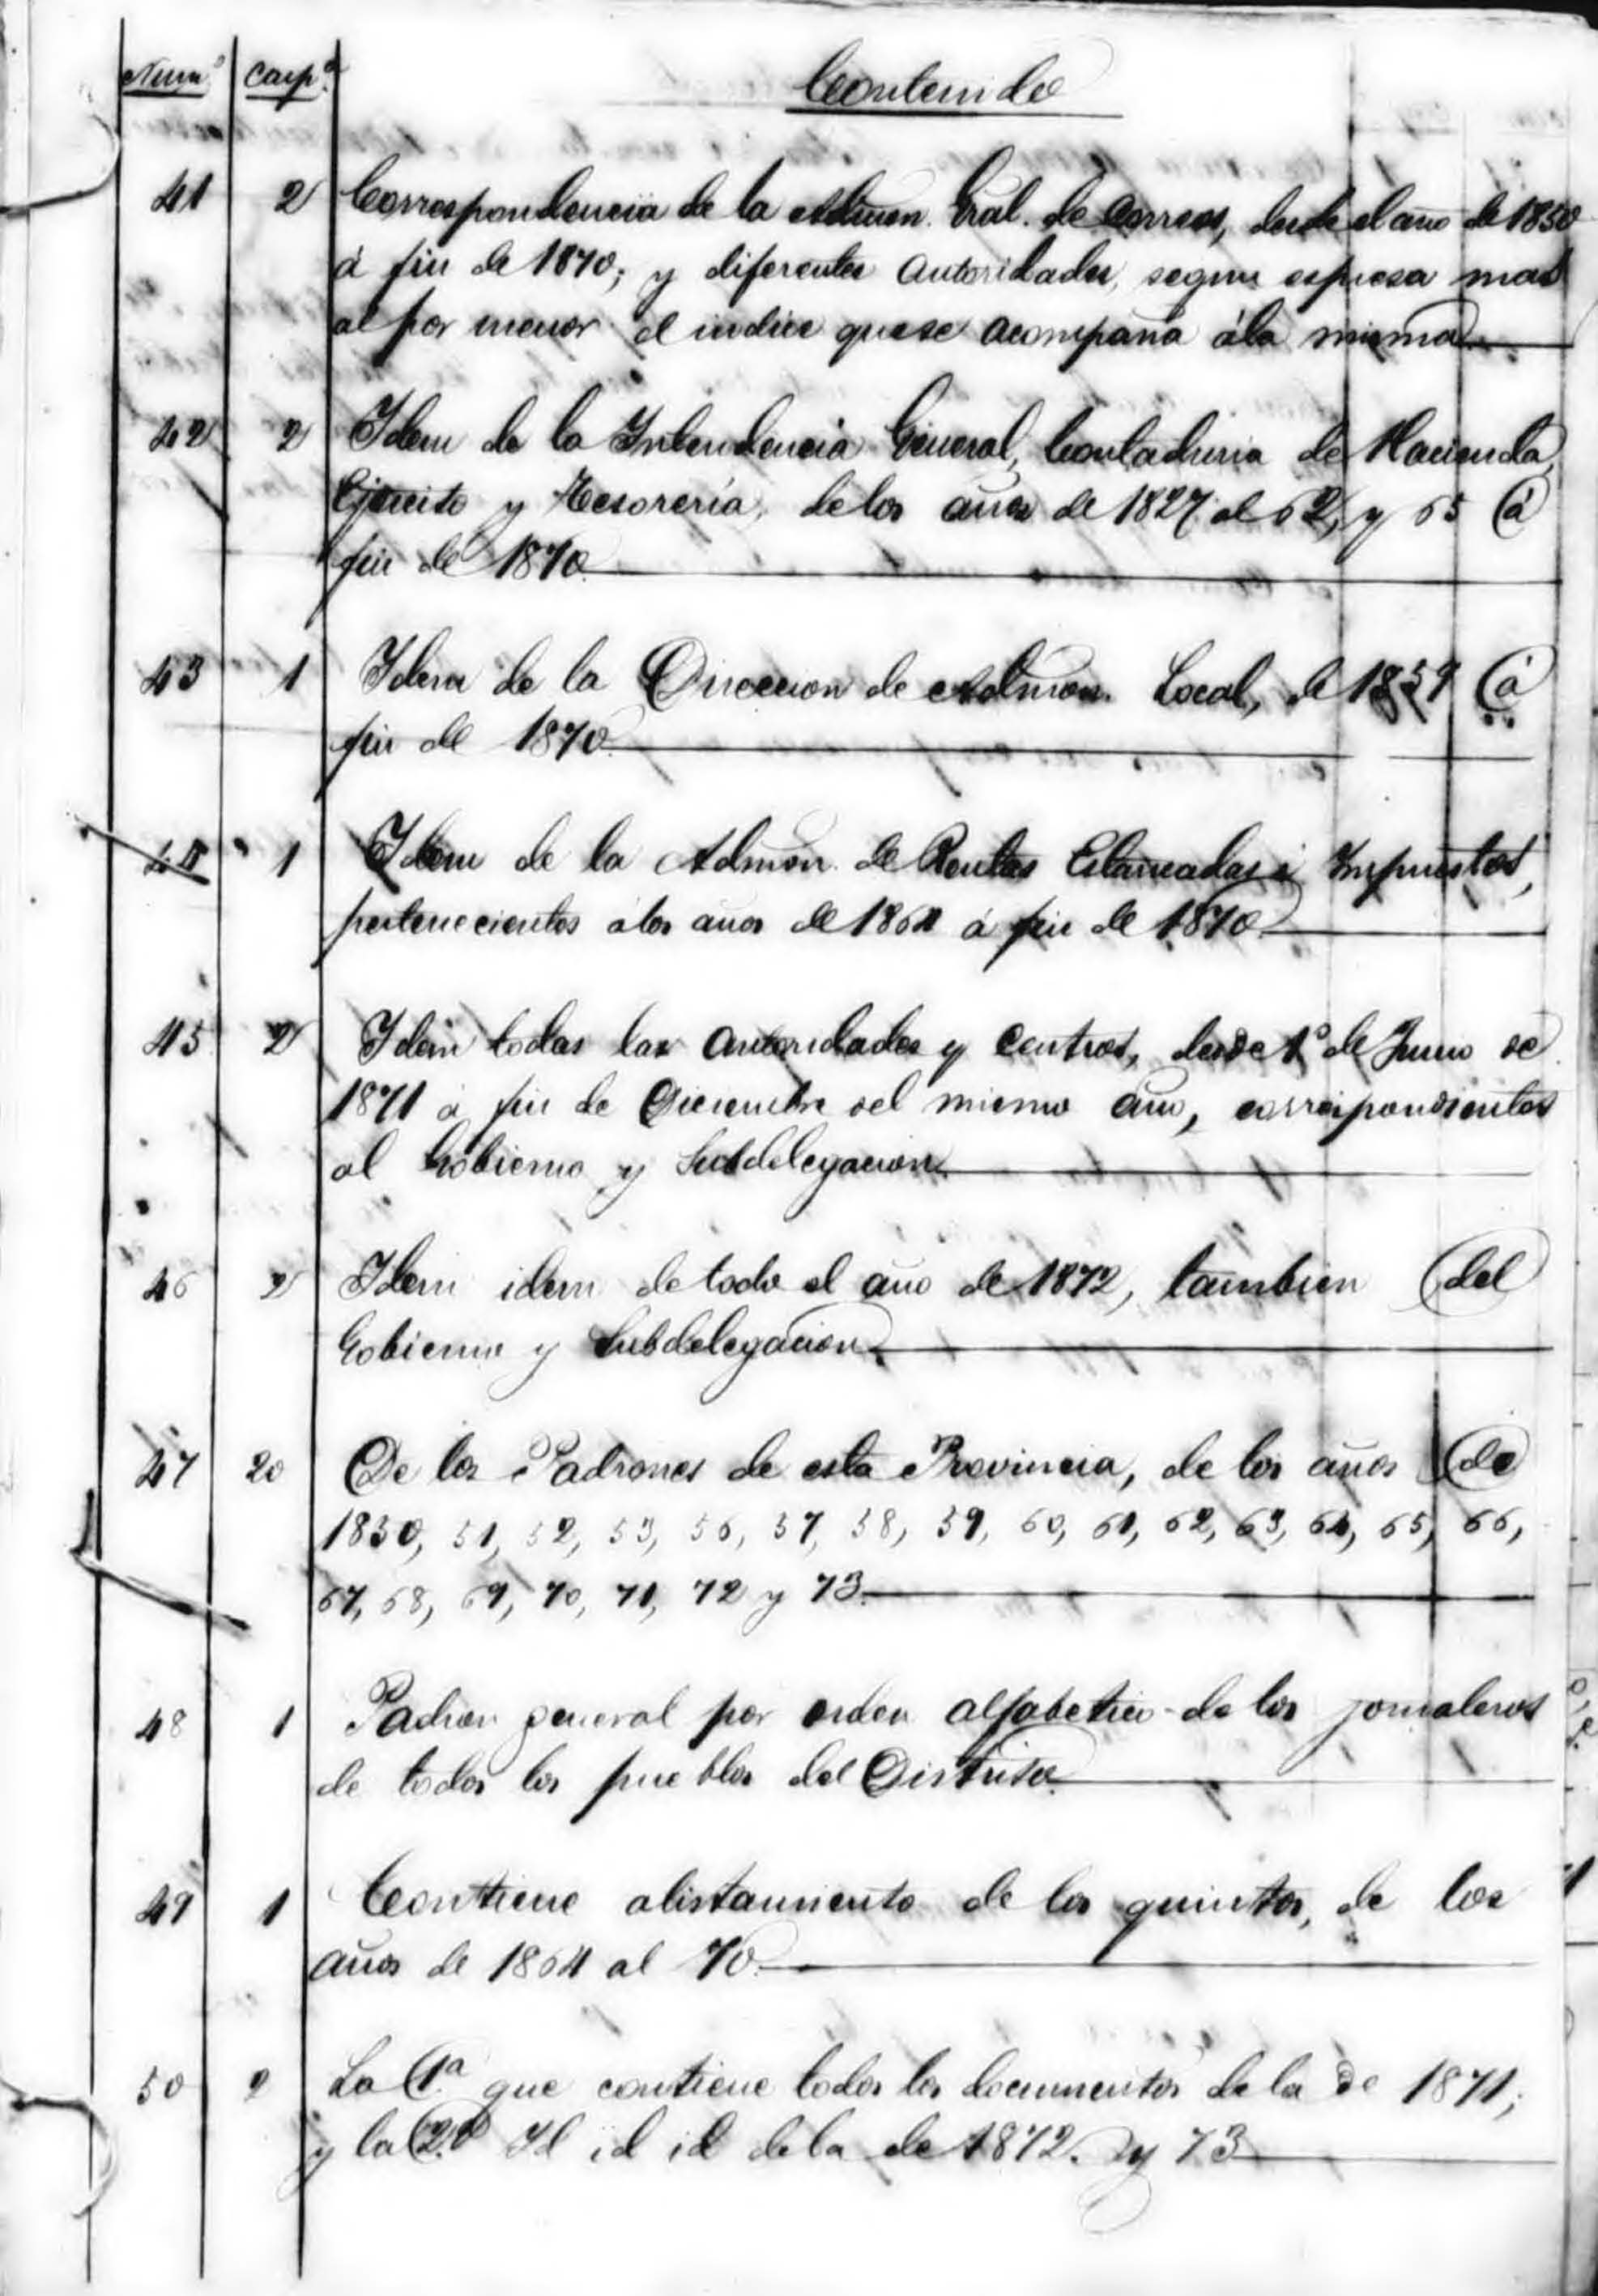 Num.º Carp.ª Contenido
41 2 Correspondencia de la Admon. Gral. de Correos, desde el año de 1850
á fin de 1870; y diferentes autoridades, segun espresa mas
al por menor el indice que se acompaña á la misma
42 2 Idem de la Intendencia General, Contaduria de Hacienda,
Ejército y Tesorería, de los años de 1827 al 62, y 65 á
fin de 1870.
43 1 Idem de la Direccion de Admon. Local, de 1859 á
fin de 1870.
44 1 Idem de la Admon. de Rentas Estancadas é Impuestos,
pertenecientes á los años de 1864 á fin de 1870.
45 2 Idem todas las autoridades y Centros, desde 1º de Junio de
1871 á fin de Diciembre del mismo año, correspondientes
al Gobierno y Subdelegacion
46 2 Idem idem de todo el año de 1872, tambien del
Gobierno y Subdelegacion.
47 20 De los Padrones de esta Provincia, de los años de
1850, 51, 52, 53, 56, 57, 58, 59, 60, 61, 62, 63, 64, 65, 66,
67, 68, 69, 70, 71, 72 y 73.
48 1 Padron general por orden alfabetico de los jornaleros
de todos los pueblos del Distrito.
49 1 Contiene alistamiento de los quintos, de los
años de 1864 al 70.
50 2 La 1ª que contiene todos los documentos de la de 1871;
y la 2ª Id id id de la de 1872. y 73